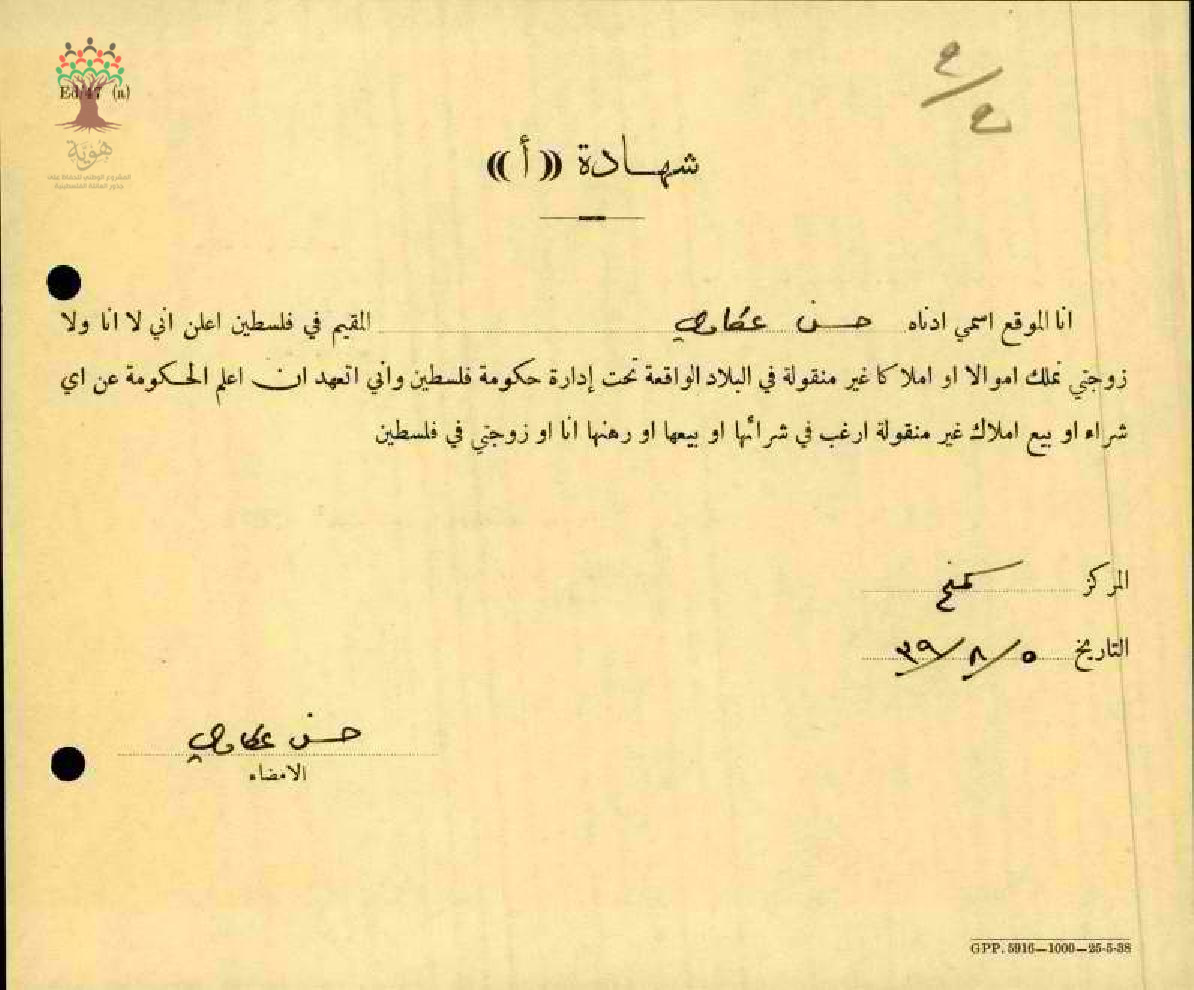 Ed/47 (a)
هوية
المشروع الوطني للحفاظ على
جذور العائلة الفلسطينية
شهادة ((أ))
انا الموقع اسمي ادناه حسن عطاوي المقيم في فلسطين اعلن اني لا انا ولا
زوجتي نملك اموالا او املاكا غير منقولة في البلاد الواقعة تحت إدارة حكومة فلسطين واني اتعهد ان اعلم الحكومة عن اي
شراء او بيع املاك غير منقولة ارغب في شرائها او بيعها او رهنها انا او زوجتي في فلسطين
المركز
التاريخ ٥/٨/٣٩
حسن عطاوي
الامضاء
GPP. 5916—1000—25-5-38